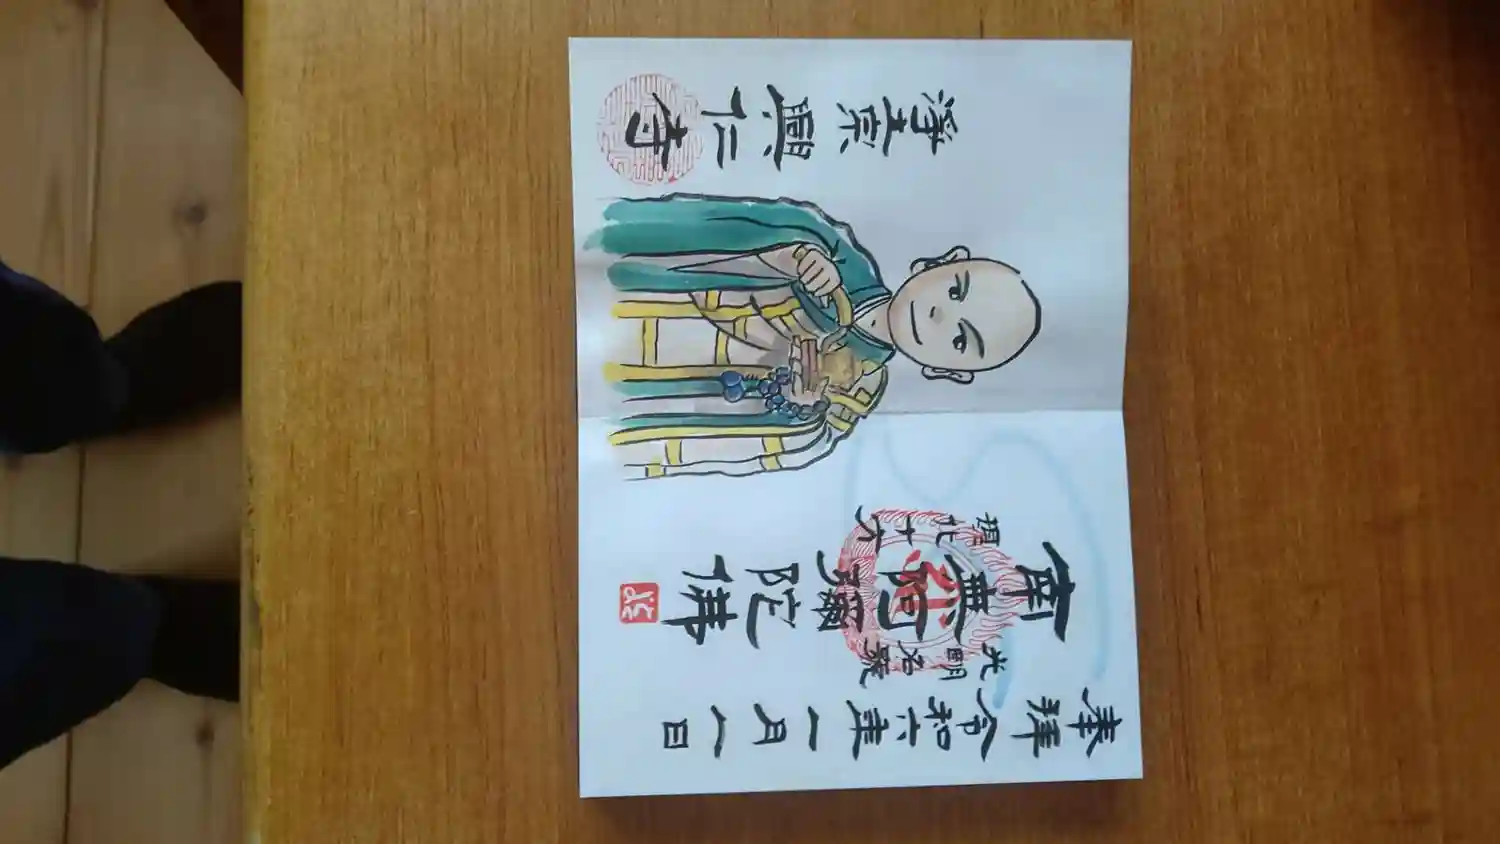 奉拝 令和六年一月八日
光明名號
南無阿弥陀佛
摂化十六
浄土宗
興仁寺